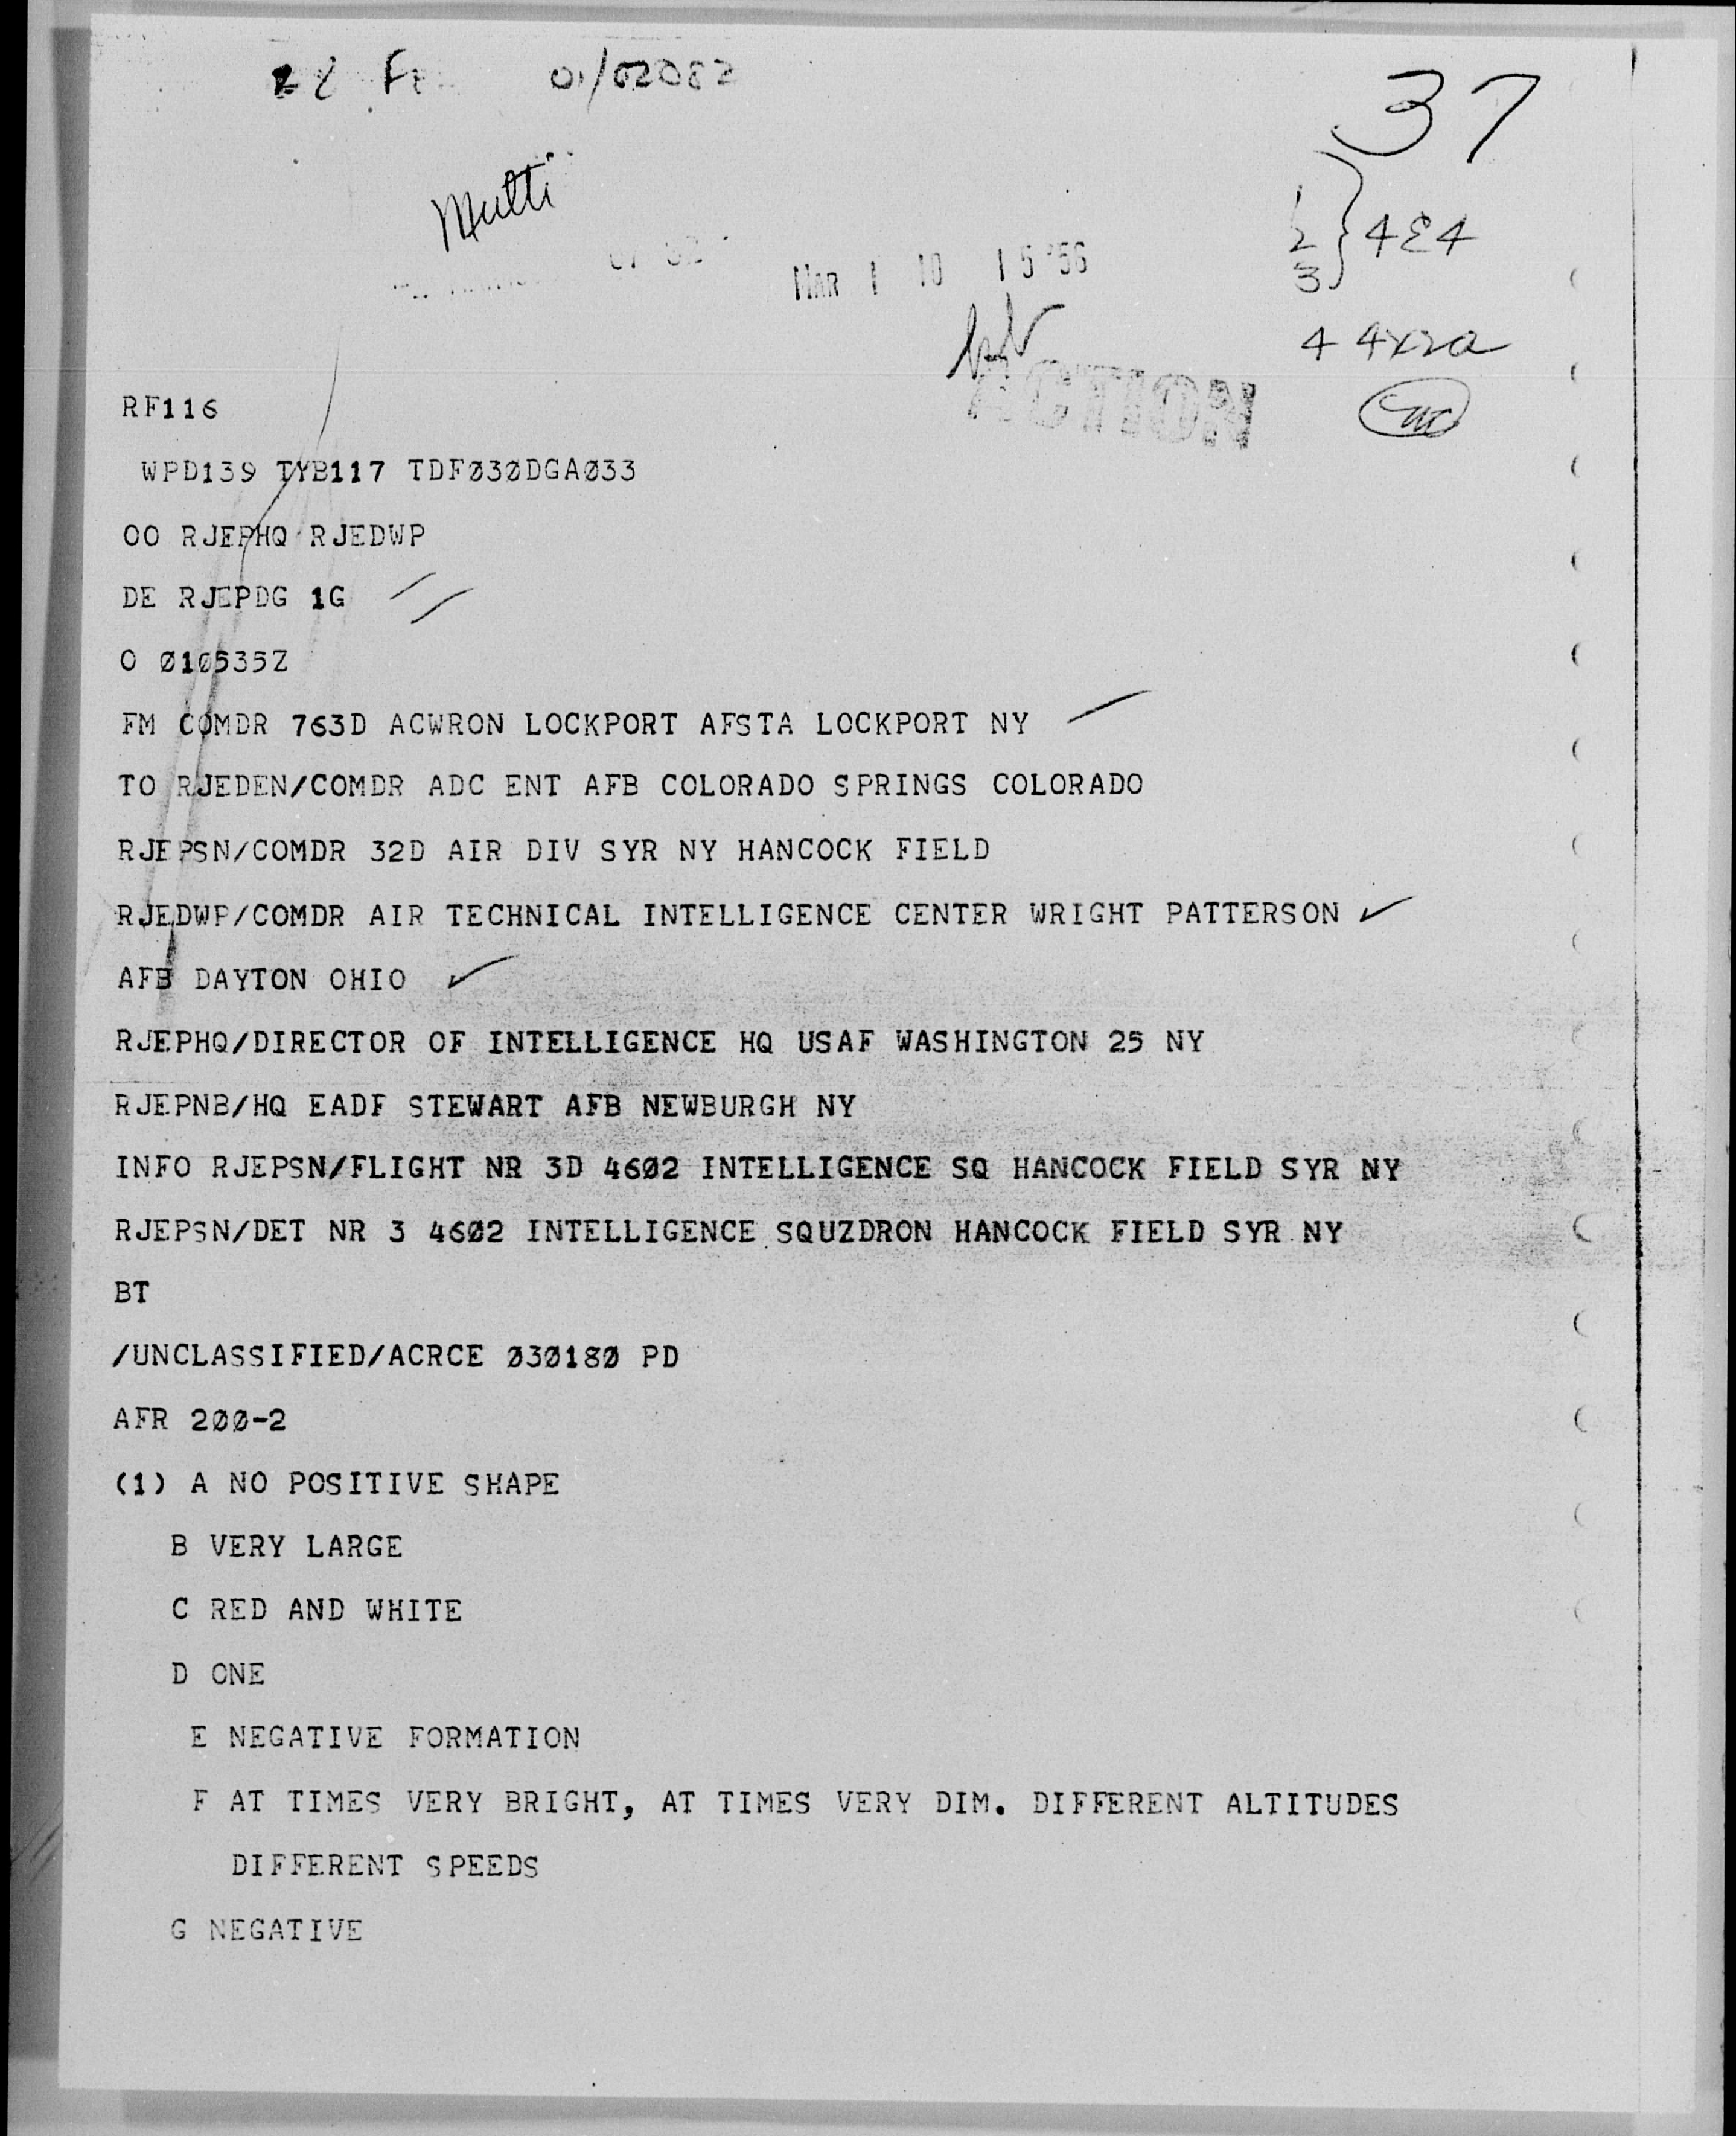 37
Multi
MAR 1 10 15 '56
1
2 } 4E4
3
ACTION
RF116
WPD139 TYB117 TDFØ3ØDGAØ33
OO RJEPHQ RJEDWP
DE RJEPDG 1G
O Ø1Ø535Z
FM COMDR 763D ACWRON LOCKPORT AFSTA LOCKPORT NY
TO RJEDEN/COMDR ADC ENT AFB COLORADO SPRINGS COLORADO
RJEPSN/COMDR 32D AIR DIV SYR NY HANCOCK FIELD
RJEDWP/COMDR AIR TECHNICAL INTELLIGENCE CENTER WRIGHT PATTERSON
AFB DAYTON OHIO
RJEPHQ/DIRECTOR OF INTELLIGENCE HQ USAF WASHINGTON 25 NY
RJEPNB/HQ EADF STEWART AFB NEWBURGH NY
INFO RJEPSN/FLIGHT NR 3D 46Ø2 INTELLIGENCE SQ HANCOCK FIELD SYR NY
RJEPSN/DET NR 3 46Ø2 INTELLIGENCE SQUZDRON HANCOCK FIELD SYR NY
BT
/UNCLASSIFIED/ACRCE Ø3Ø18Ø PD
AFR 2ØØ-2
(1) A NO POSITIVE SHAPE
B VERY LARGE
C RED AND WHITE
D ONE
E NEGATIVE FORMATION
F AT TIMES VERY BRIGHT, AT TIMES VERY DIM. DIFFERENT ALTITUDES
DIFFERENT SPEEDS
G NEGATIVE